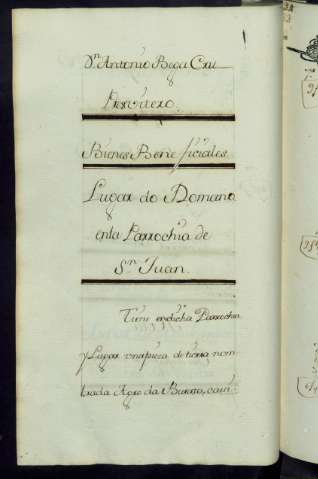 Dn. Antonio Bega Cru
Presvitero.
Bienes Beneficiales
Lugar do Domano
enla Parrochia de
Sn. Juan.
Tiene en dicha Parrochia
y Lugar una pieza de tierra nom-
brada Agro da